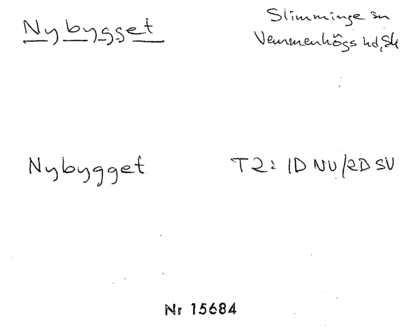 Nybygget
Slimminge sn
Vemmenhögs hd, Sk
Nybygget
T2: 1D NV/2D SV
Nr 15684